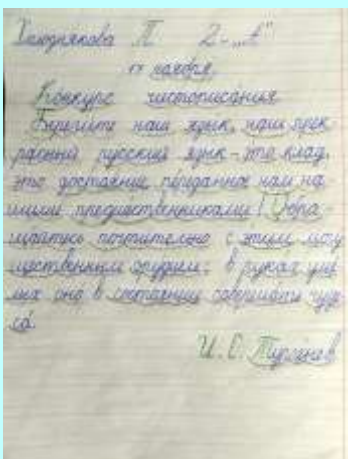 Холоднякова П. 2-„А"
17 ноября.
Конкурс чистописания
Берегите наш язык, наш прек-
расный русский язык - это клад,
это достояние, переданное нам на-
шими предшественниками! Обра-
щайтесь почтительно с этим могу
щественным орудием: в руках уме
лых оно в состоянии совершать чуде
са.
И. С. Тургенев